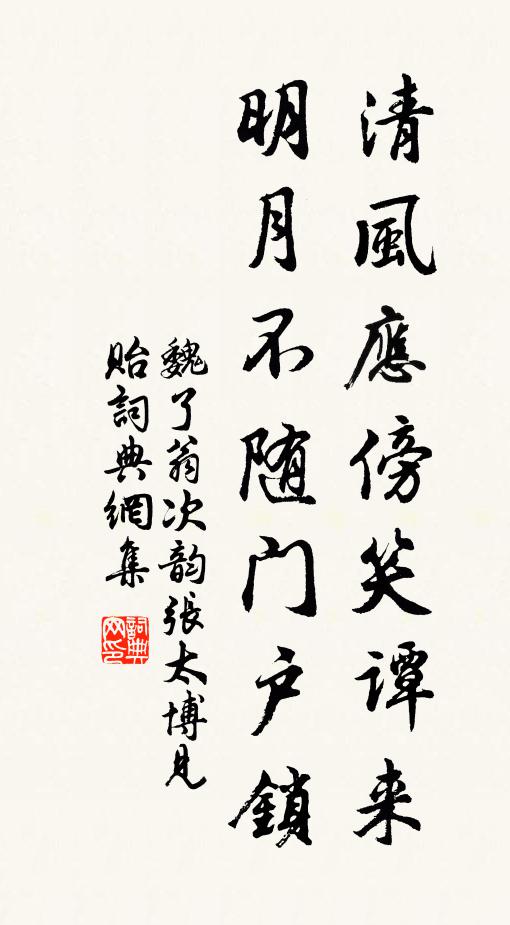 清風應傍笑譚来
明月不随门户鎖
魏了翁次韵張太博見
貽詞典網集
詞典网印